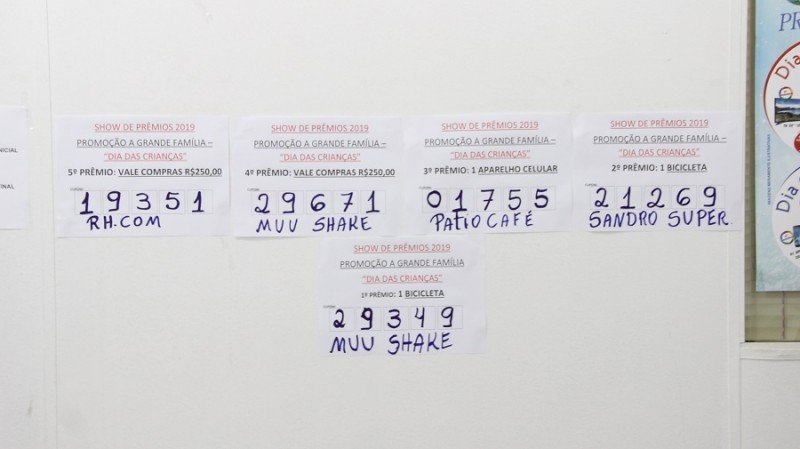 NICIAL
INAL
SHOW DE PRÊMIOS 2019
PROMOÇÃO A GRANDE FAMÍLIA –
"DIA DAS CRIANÇAS"
5º PRÊMIO: VALE COMPRAS R$250,00
19351
RH.COM
SHOW DE PRÊMIOS 2019
PROMOÇÃO A GRANDE FAMÍLIA –
"DIA DAS CRIANÇAS"
4º PRÊMIO: VALE COMPRAS R$250,00
29671
MUU SHAKE
SHOW DE PRÊMIOS 2019
PROMOÇÃO A GRANDE FAMÍLIA –
"DIA DAS CRIANÇAS"
3º PRÊMIO: 1 APARELHO CELULAR
01755
PATIO CAFÉ
SHOW DE PRÊMIOS 2019
PROMOÇÃO A GRANDE FAMÍLIA –
"DIA DAS CRIANÇAS"
2º PRÊMIO: 1 BICICLETA
21269
SANDRO SUPER.
SHOW DE PRÊMIOS 2019
PROMOÇÃO A GRANDE FAMÍLIA
"DIA DAS CRIANÇAS"
1º PRÊMIO: 1 BICICLETA
29349
MUU SHAKE
PR
Dia
Dia